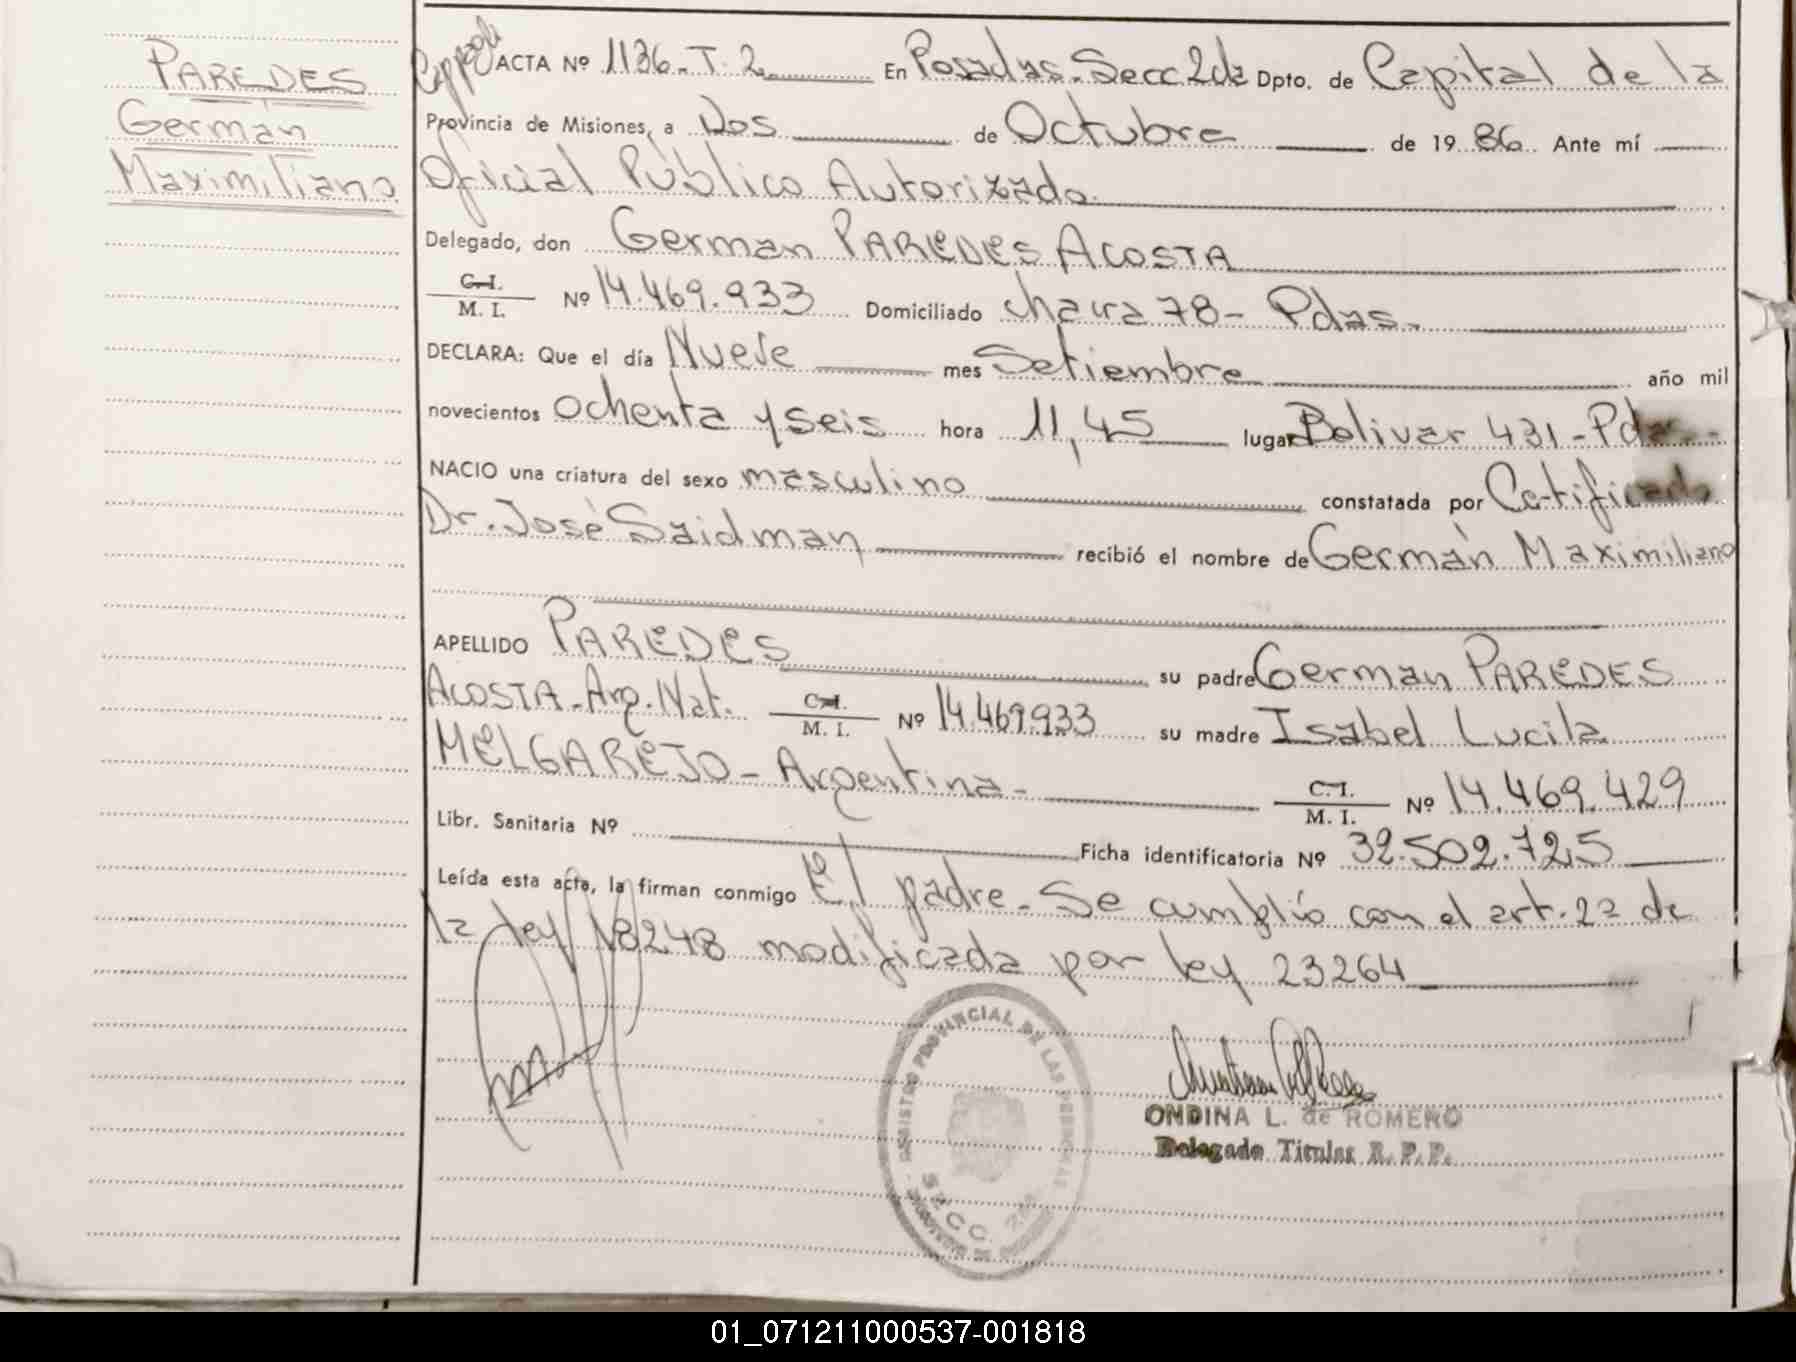 PAREDES
Germán
Maximiliano
ACTA Nº 1136-T-2 En Posadas-Secc 2da Dpto. de Capital de la
Provincia de Misiones, a Dos de Octubre de 1986 Ante mí
Oficial Público Autorizado.
Delegado, don German PAREDES ACOSTA
C.I.
M. I. Nº 14.469.933 Domiciliado chacra 78- Pdas.
DECLARA: Que el día Nueve mes Setiembre año mil
novecientos ochenta y seis hora 11,45 lugar Bolivar 431-Pdas.-
NACIO una criatura del sexo masculino constatada por Certificado
Dr. José Saidman recibió el nombre de Germán Maximiliano
APELLIDO PAREDES su padre German PAREDES
ACOSTA-Arg. Nat. C.I.
M. I. Nº 14.469.933 su madre Isabel Lucila
MELGAREJO- Argentina- C.I.
M. I. Nº 14.469.429
Libr. Sanitaria Nº Ficha identificatoria Nº 32.502.725
Leída esta acta, la firman conmigo El padre- Se cumplió con el art. 2º de
la ley 18248 modificada por ley 23264
REGISTRO PROVINCIAL DE LAS PERSONAS
SECC. 2da
ONDINA L. de ROMERO
Delegado Titular R. P. P.
01_071211000537-001818